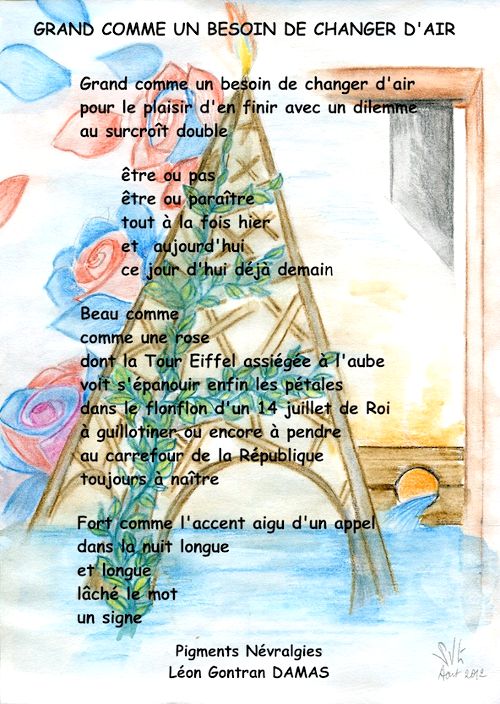 GRAND COMME UN BESOIN DE CHANGER D'AIR
Grand comme un besoin de changer d'air
pour le plaisir d'en finir avec un dilemme
au surcroît double
être ou pas
être ou paraître
tout à la fois hier
et aujourd'hui
ce jour d'hui déjà demain
Beau comme
comme une rose
dont la Tour Eiffel assiégée à l'aube
voit s'épanouir enfin les pétales
dans le flonflon d'un 14 juillet de Roi
à guillotiner ou encore à pendre
au carrefour de la République
toujours à naître
Fort comme l'accent aigu d'un appel
dans la nuit longue
et longue
lâché le mot
un signe
Pigments Névralgies
Léon Gontran DAMAS
Août 2012